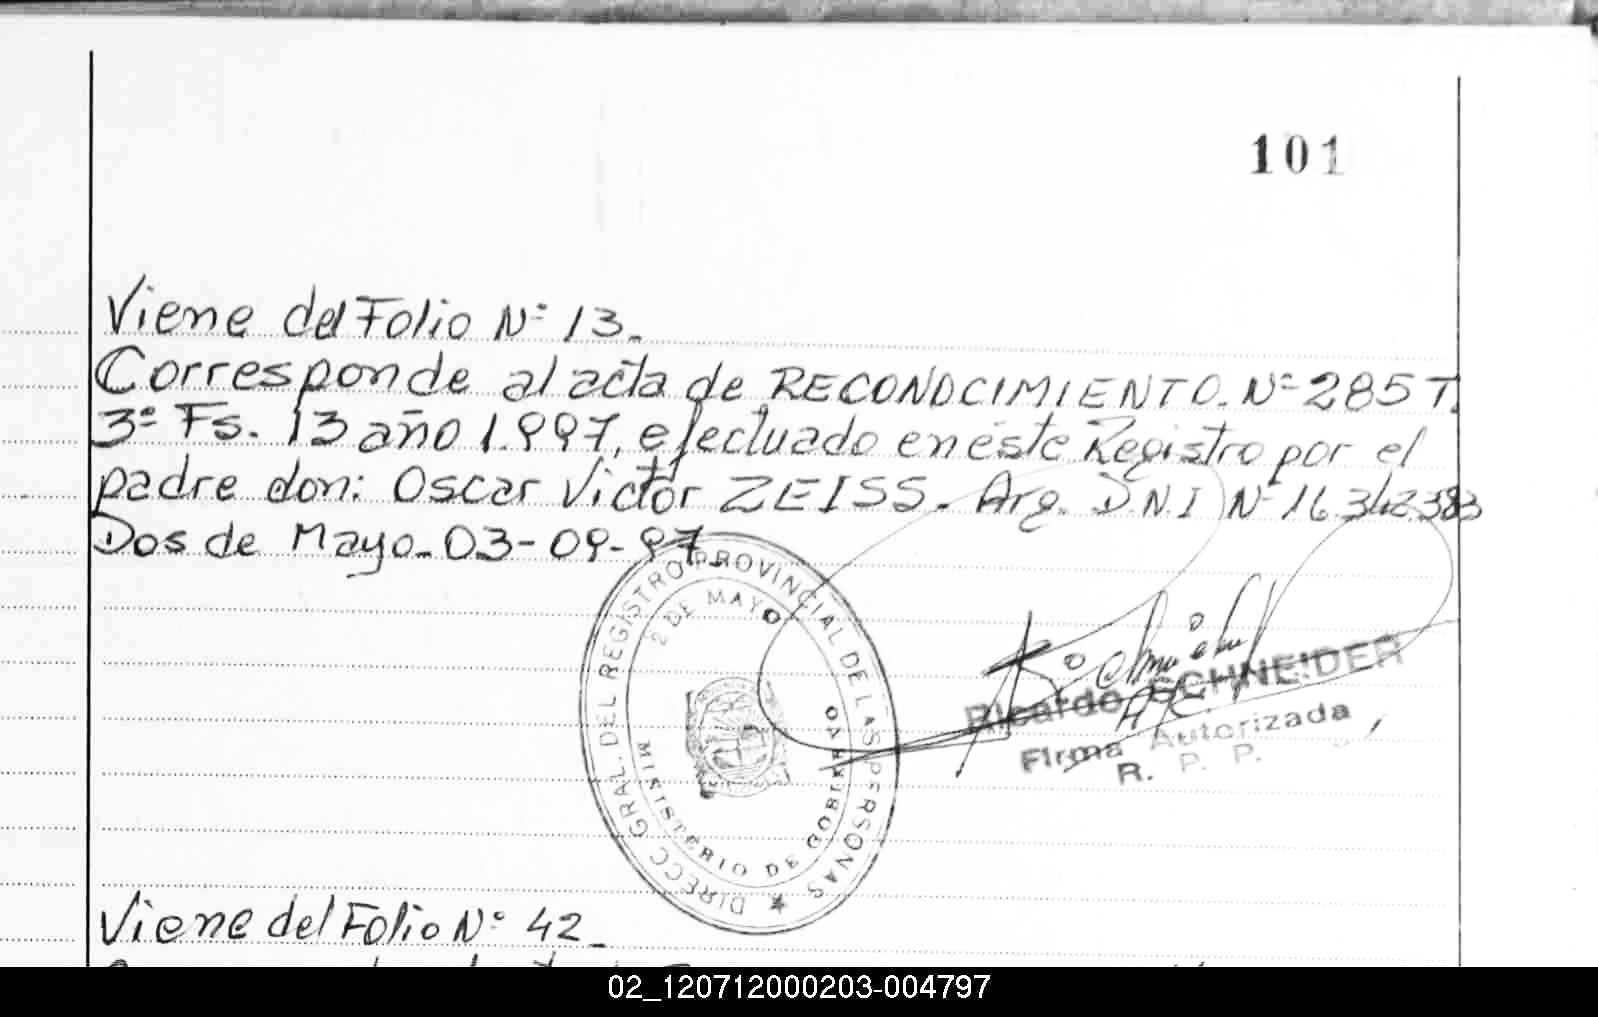 101
Viene del Folio Nº 13._
Corresponde al acta de RECONOCIMIENTO. Nº 285 T.
3º Fs. 13 año 1.997, efectuado en éste Registro por el
padre don: Oscar Victor ZEISS. Arg. D.N.I Nº 16.342.383
Dos de Mayo_ 03-09-97
DIRECC. GRAL. DEL REGISTRO PROVINCIAL DE LAS PERSONAS
2 DE MAYO
MINISTERIO DE GOBIERNO
Ricardo SCHNEIDER
Firma Autorizada
R. P. P.
Viene del Folio Nº 42_
02_120712000203-004797